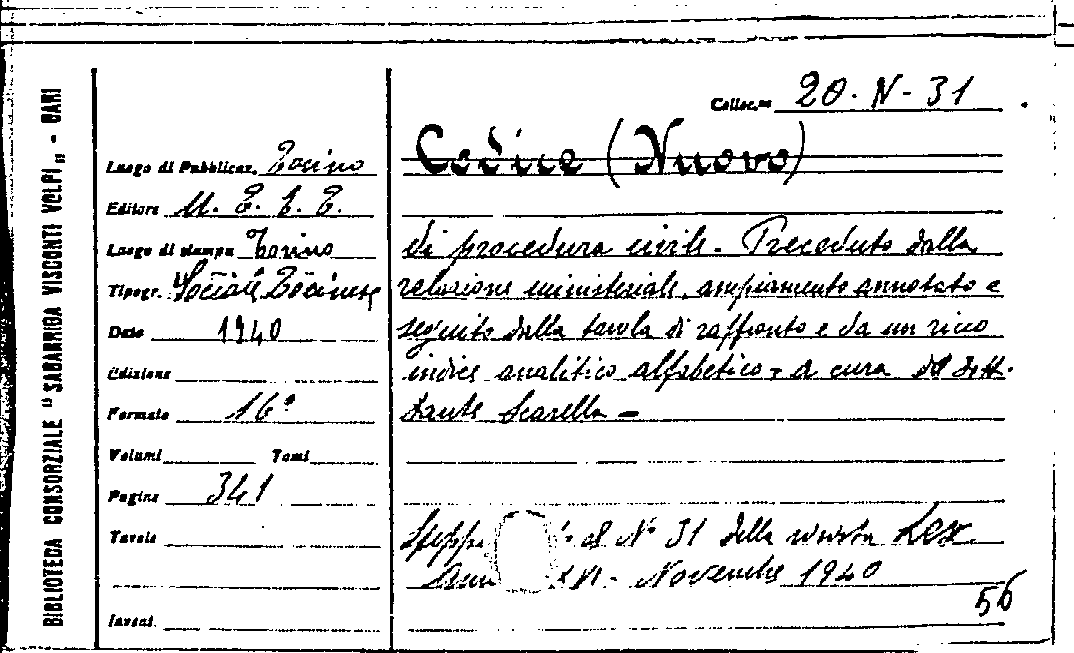 BIBLIOTECA CONSORZIALE "SAGARRIGA VISCONTI VOLPI" - BARI
Colloc.ne 20 - N - 31
Codice (Nuovo)
Luogo di Pubblicaz. Torino
Editore U. T. E. T.
Luogo di stampa Torino
Tipogr. Sociale Torinese
Data 1940
Edizione
Formato 16°
Volumi Tomi
Pagine 341
Tavole
Invent.
di procedura civile. Preceduto dalla
relazione ministeriale, ampiamente annotato e
seguito dalla tavola di raffronto e da un ricco
indice analitico alfabetico - a cura del Dott.
Dante Scarella -
al N° 31 della rivista Lex
Novembre 1940
56